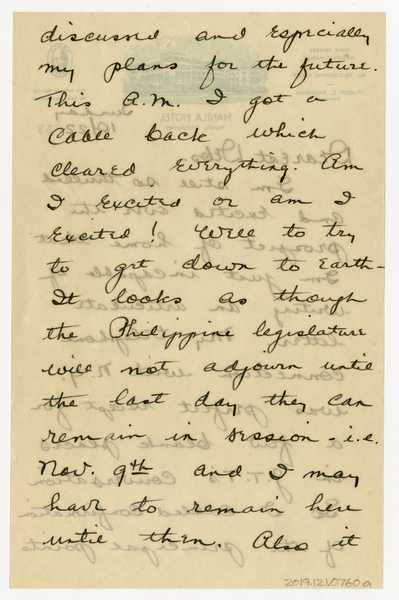 discussed and Especially
my plans for the future.
This A.M. I got a
Cable back which
cleared Everything. Am
I Excited or am I
Excited! Well to try
to get down to Earth-
It looks as though
the Philippine legislature
will not adjourn until
the last day they can
remain in session - i.e.
Nov. 9th and I may
have to remain here
until then. Also it
2019.121.0760a